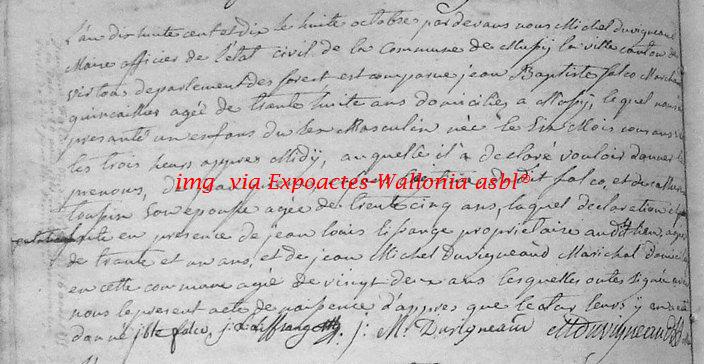 L'an dix huite cent et dix le huite octobre par devans nous Michel duvigneaud
Maire officier de l'état civil de la Commune de Mussy la ville canton de
virton departement des forest est comparue jean Baptiste falco Marchan
quincailler ageé de trante huite ans domicilies a Mussy, lequel nous a
presanté un enfans du sex Masculin neé le Six Mois courans
les trois heurs appres Midy, auquelle il a declaré vouloir donner
prenons,
img via Expoactes-Wallonia asbl®
dit falco, et de
toupin Son epouse ageé de trente cinq ans, laquel declaration
faite en presence de jean louis lefrange proprietaire audit lieu,
de trante et un ans, et de jean Michel Duvigneaud Marichal
en cette commune ageé de vingt deux ans lesquelles ont signée
nous le present acte de naissence d'appres que lecture leurs y en
danneé jbte falco, j: M: Duvigneaud MDuvigneaud